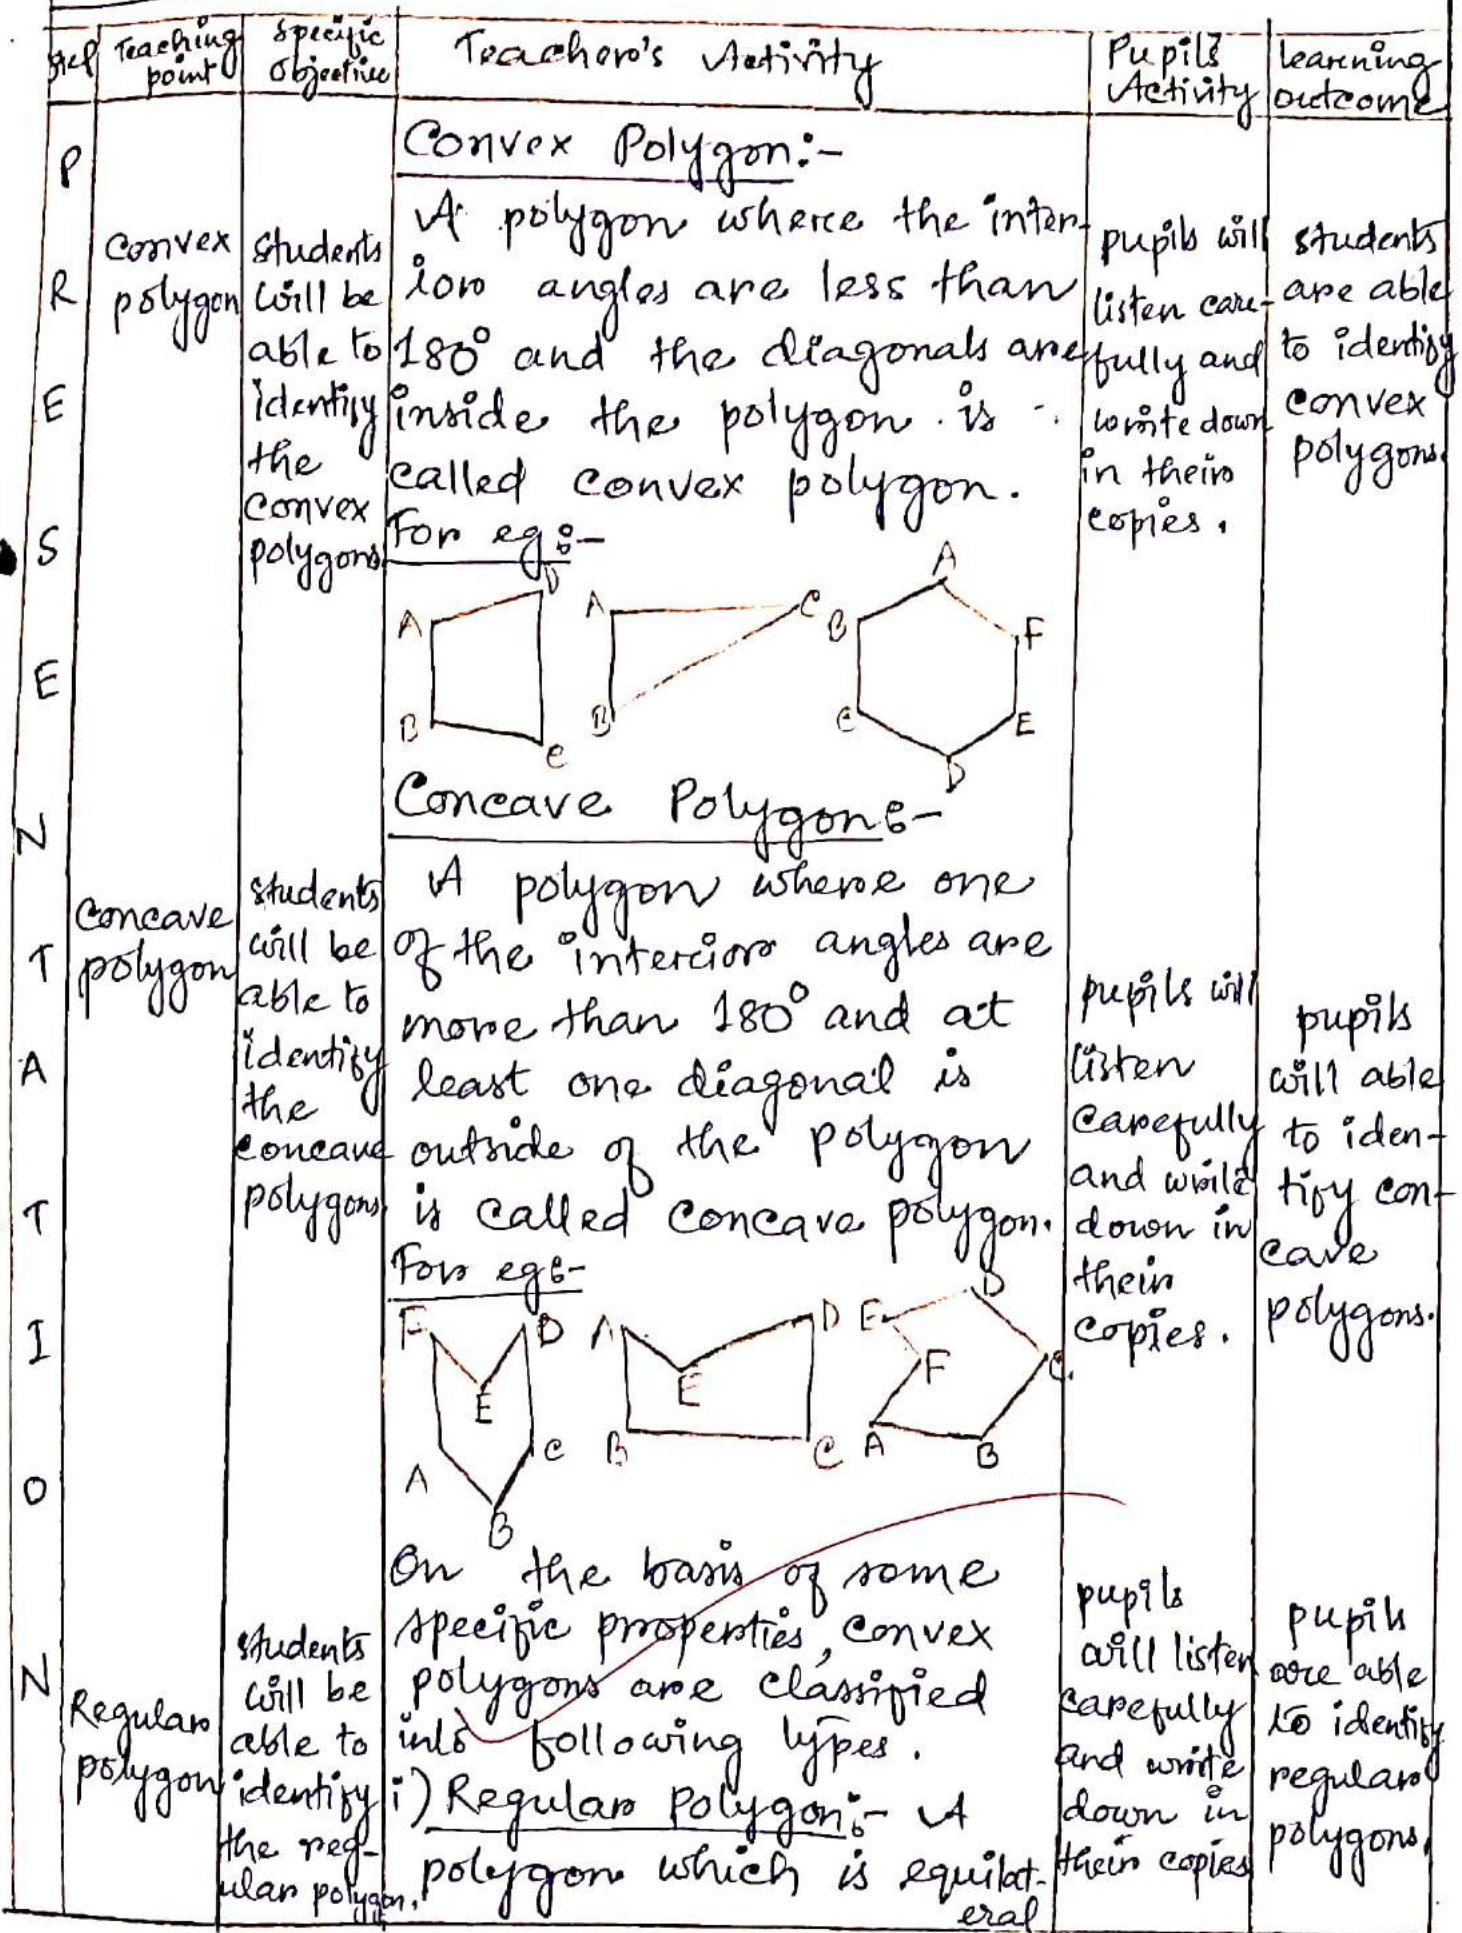 Step
Teaching point
Specific Objective
Teacher's Activity
Pupil's Activity
Learning outcome
P
R
E
S
E
N
T
A
T
I
O
N
Convex
polygon
students
will be
able to
identify
the
convex
polygons
Convex Polygon:-
A polygon where the inter-
ior angles are less than
180° and the diagonals are
inside the polygon is
called convex polygon.
For eg:-
A D B C
A C B
A B F C E D
pupils will
listen care-
fully and
write down
in their
copies.
students
are able
to identify
convex
polygons.
Concave
polygon
students
will be
able to
identify
the
concave
polygons
Concave Polygon:-
A polygon where one
of the interior angles are
more than 180° and at
least one diagonal is
outside of the polygon
is called concave polygon.
For eg:-
F D E C A B
A D E B C
E D F C A B
pupils will
listen
carefully
and write
down in
their
copies.
pupils
will able
to iden-
tify con-
cave
polygons.
Regular
polygon
students
will be
able to
identify
the reg-
ular polygon.
On the basis of some
specific properties, convex
polygons are classified
into following types.
i) Regular Polygon:- A
polygon which is equilat-
eral
pupils
will listen
carefully
and write
down in
their copies
pupils
are able
to identify
regular
polygons.